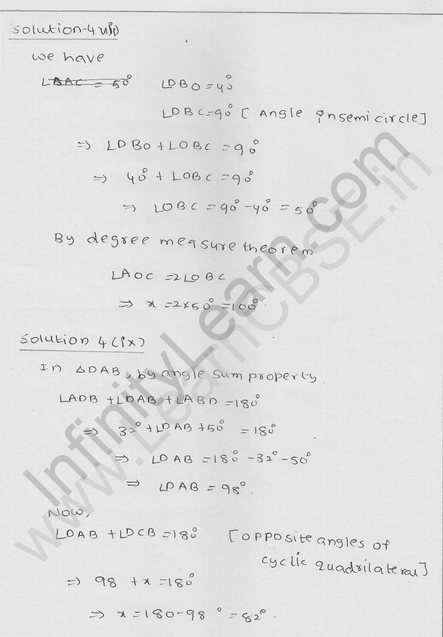 Solution-4 viii)
we have
∠BAC = 50° ∠DBO = 40°
∠DBC = 90° [Angle in semicircle]
⇒ ∠DBO + ∠OBC = 90°
⇒ 40° + ∠OBC = 90°
⇒ ∠OBC = 90° - 40° = 50°
By degree measure theorem
∠AOC = 2∠OBC
⇒ x = 2×50° = 100°.
Solution 4(ix)
In ΔDAB, by angle sum property
∠ADB + ∠DAB + ∠ABD = 180°
⇒ 32° + ∠DAB + 50° = 180°
⇒ ∠DAB = 180° - 32° - 50°
⇒ ∠DAB = 98°.
NOW,
∠DAB + ∠DCB = 180° [opposite angles of
cyclic quadrilateral]
⇒ 98 + x = 180°
⇒ x = 180 - 98° = 82°.
InfinityLearn.com
www.LearnCBSE.in